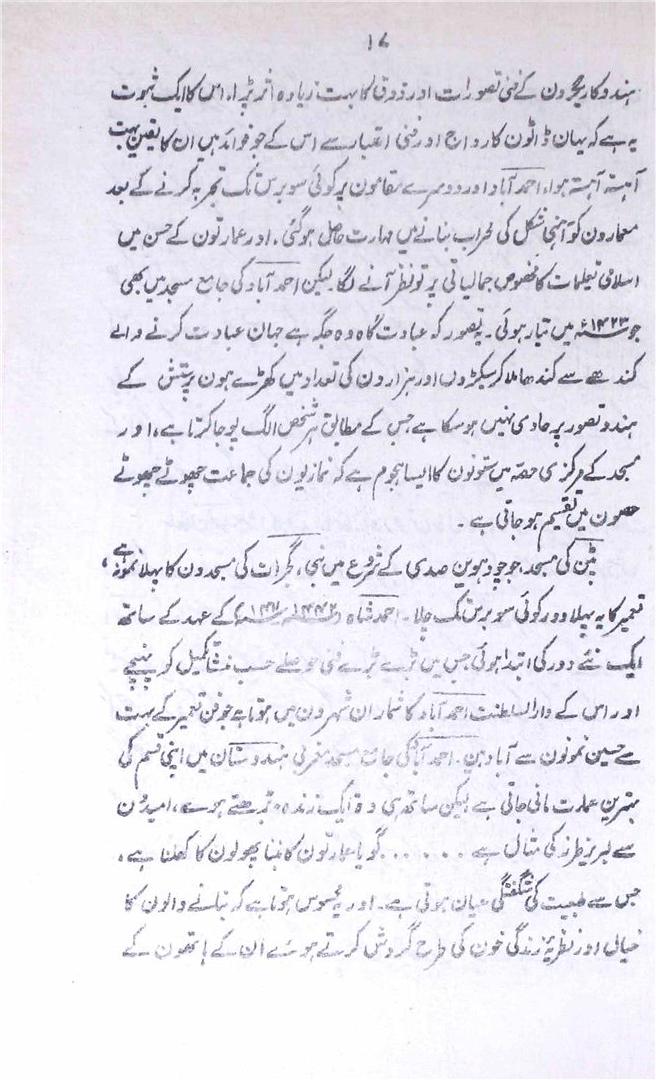 ۱۷
ہندو کاریگرون کے فنی تصورات اور ذوق کا بہت زیادہ اثر پڑا، اس کا ایک ثبوت
یہ ہے کہ یہان ڈاٹون کا رواج اور فنی اعتبار سے اس کے جو فوائد ہیں ان کا یقین بہت
آہستہ آہستہ ہوا، احمد آباد اور دوسرے مقامون پر کوئی سو برس تک تجربہ کرنے کے بعد
معمارون کو آہنی شکل کی محراب بنانے میں مہارت حاصل ہوگئی۔ اور عمارتون کے حسن میں
اسلامی تعلیمات کا مخصوص جمالیاتی پرتو نظر آنے لگا۔ لیکن احمد آباد کی جامع مسجد میں بھی
جو ۱۴۲۳ء میں تیار ہوئی۔ یہ تصور کہ عبادت گاہ وہ جگہ ہے جہان عبادت کرنے والے
کندھے سے کندھا ملا کر سیکڑوں اور ہزارون کی تعداد میں کھڑے ہون پرستش کے
ہندو تصور پر حاوی نہیں ہو سکا ہے جس کے مطابق ہر شخص الگ پوجا کرتا ہے، اور
مسجد کے مرکزی حصہ میں ستونون کا ایسا ہجوم ہے کہ نمازیون کی جماعت چھوٹے چھوٹے
حصون میں تقسیم ہو جاتی ہے۔
پٹن کی مسجد، جو چودہوین صدی کے شروع میں بنی، گجرات کی مسجدون کا پہلا نمونہ ہے،
تعمیر کا یہ پہلا دور کوئی سو برس تک چلا۔ احمد شاہ کے عہد کے ساتھ
ایک نئے دور کی ابتدا ہوئی جس میں بڑے بڑے فنی حوصلے حسب منشا تکمیل کو پہنچے
اور اس کے دارالسلطنت احمد آباد کا شمار ان شہرون میں ہوتا ہے جو فن تعمیر کے بہت
سے حسین نمونون سے آباد ہین۔ احمد آباد کی جامع مسجد مغربی ہندوستان میں اپنی قسم کی
بہترین عمارت مانی جاتی ہے لیکن ساتھ ہی وہ ایک زندہ، بڑھتے ہوئے، امیدون
سے لبریز طرز کی مثال ہے ...... گویا عمارتون کا بننا پھولون کا کھلنا ہے،
جس سے طبیعت کی شگفتگی عیان ہوتی ہے۔ اور یہ محسوس ہوتا ہے کہ بنانے والون کا
خیال اور نظریۂ زندگی خون کی طرح گردش کرتے ہوئے اُن کے ہاتھون کے